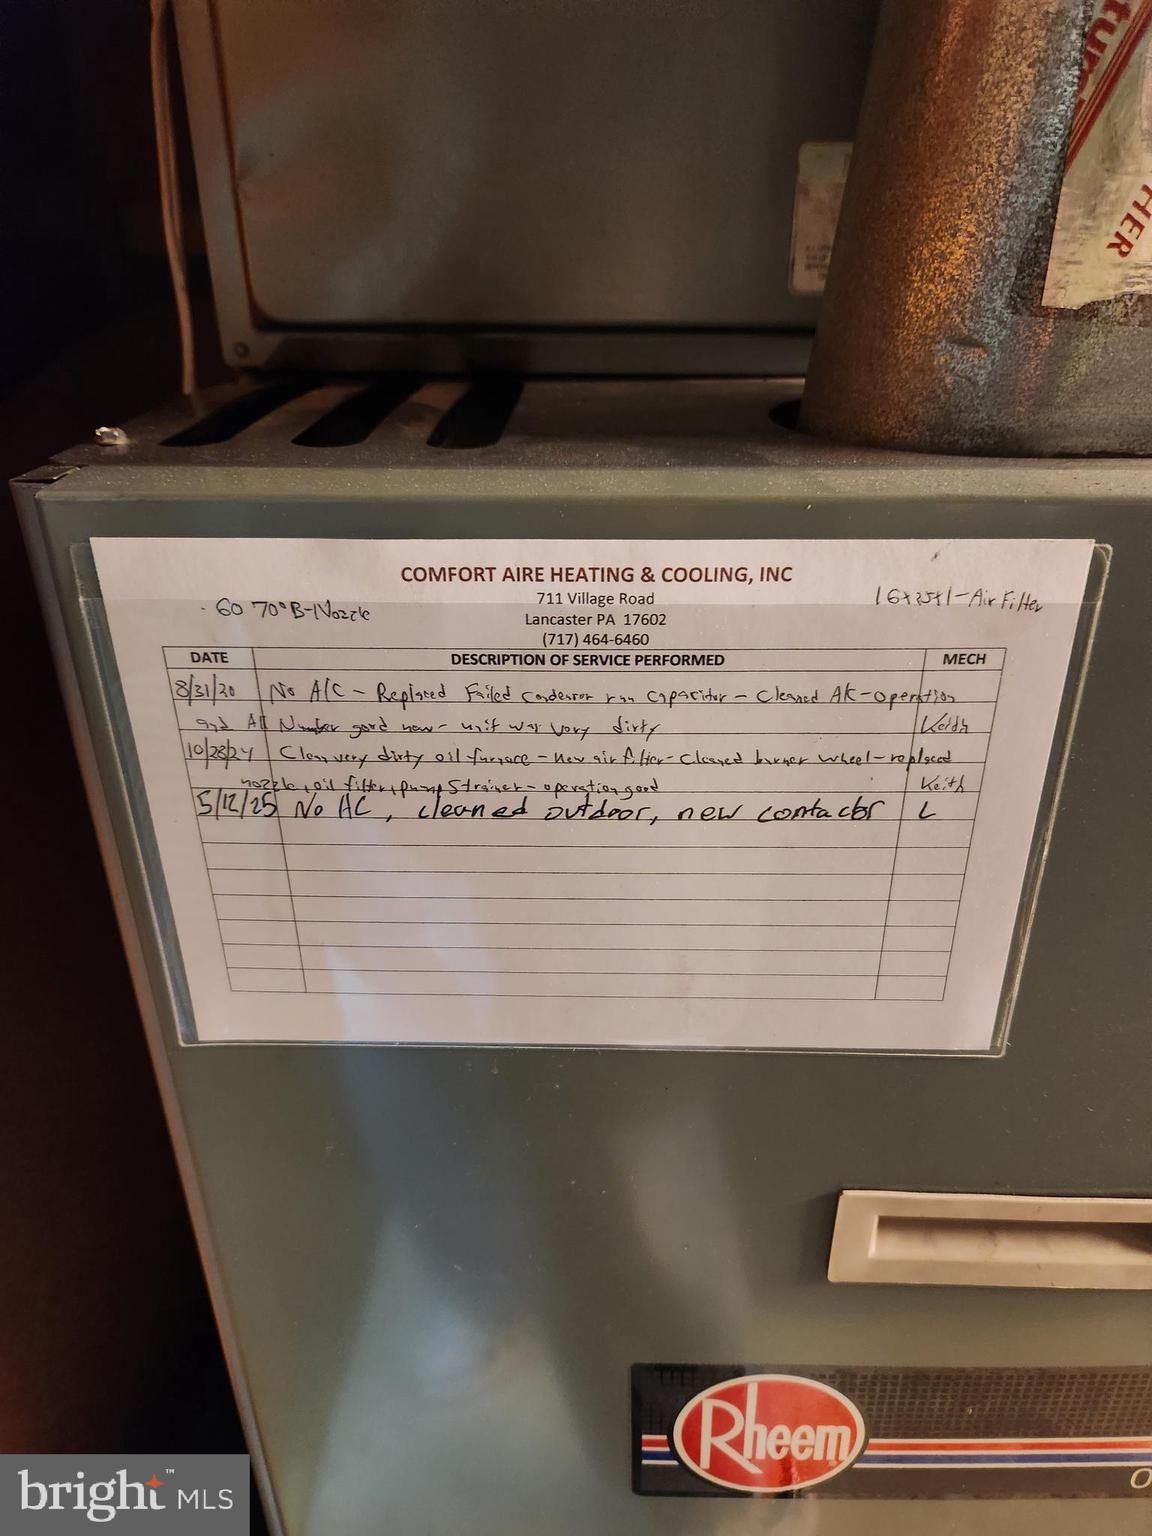 HER
COMFORT AIRE HEATING & COOLING, INC
711 Village Road
Lancaster PA 17602
(717) 464-6460
.60 70°B-Nozzle
16x25x1-Air Filter
DATE DESCRIPTION OF SERVICE PERFORMED MECH
8/31/20 No A/C - Replaced Failed Condensor run capacitor - Cleaned A/C - operation
and All Number good now - unit was very dirty Keith
10/28/24 Clean very dirty oil furnace - New air filter - Cleaned burner wheel - replaced
nozzle, oil filter, pump strainer - operation good Keith
5/12/25 No AC, cleaned outdoor, new contactor L
Rheem
O
bright™ MLS